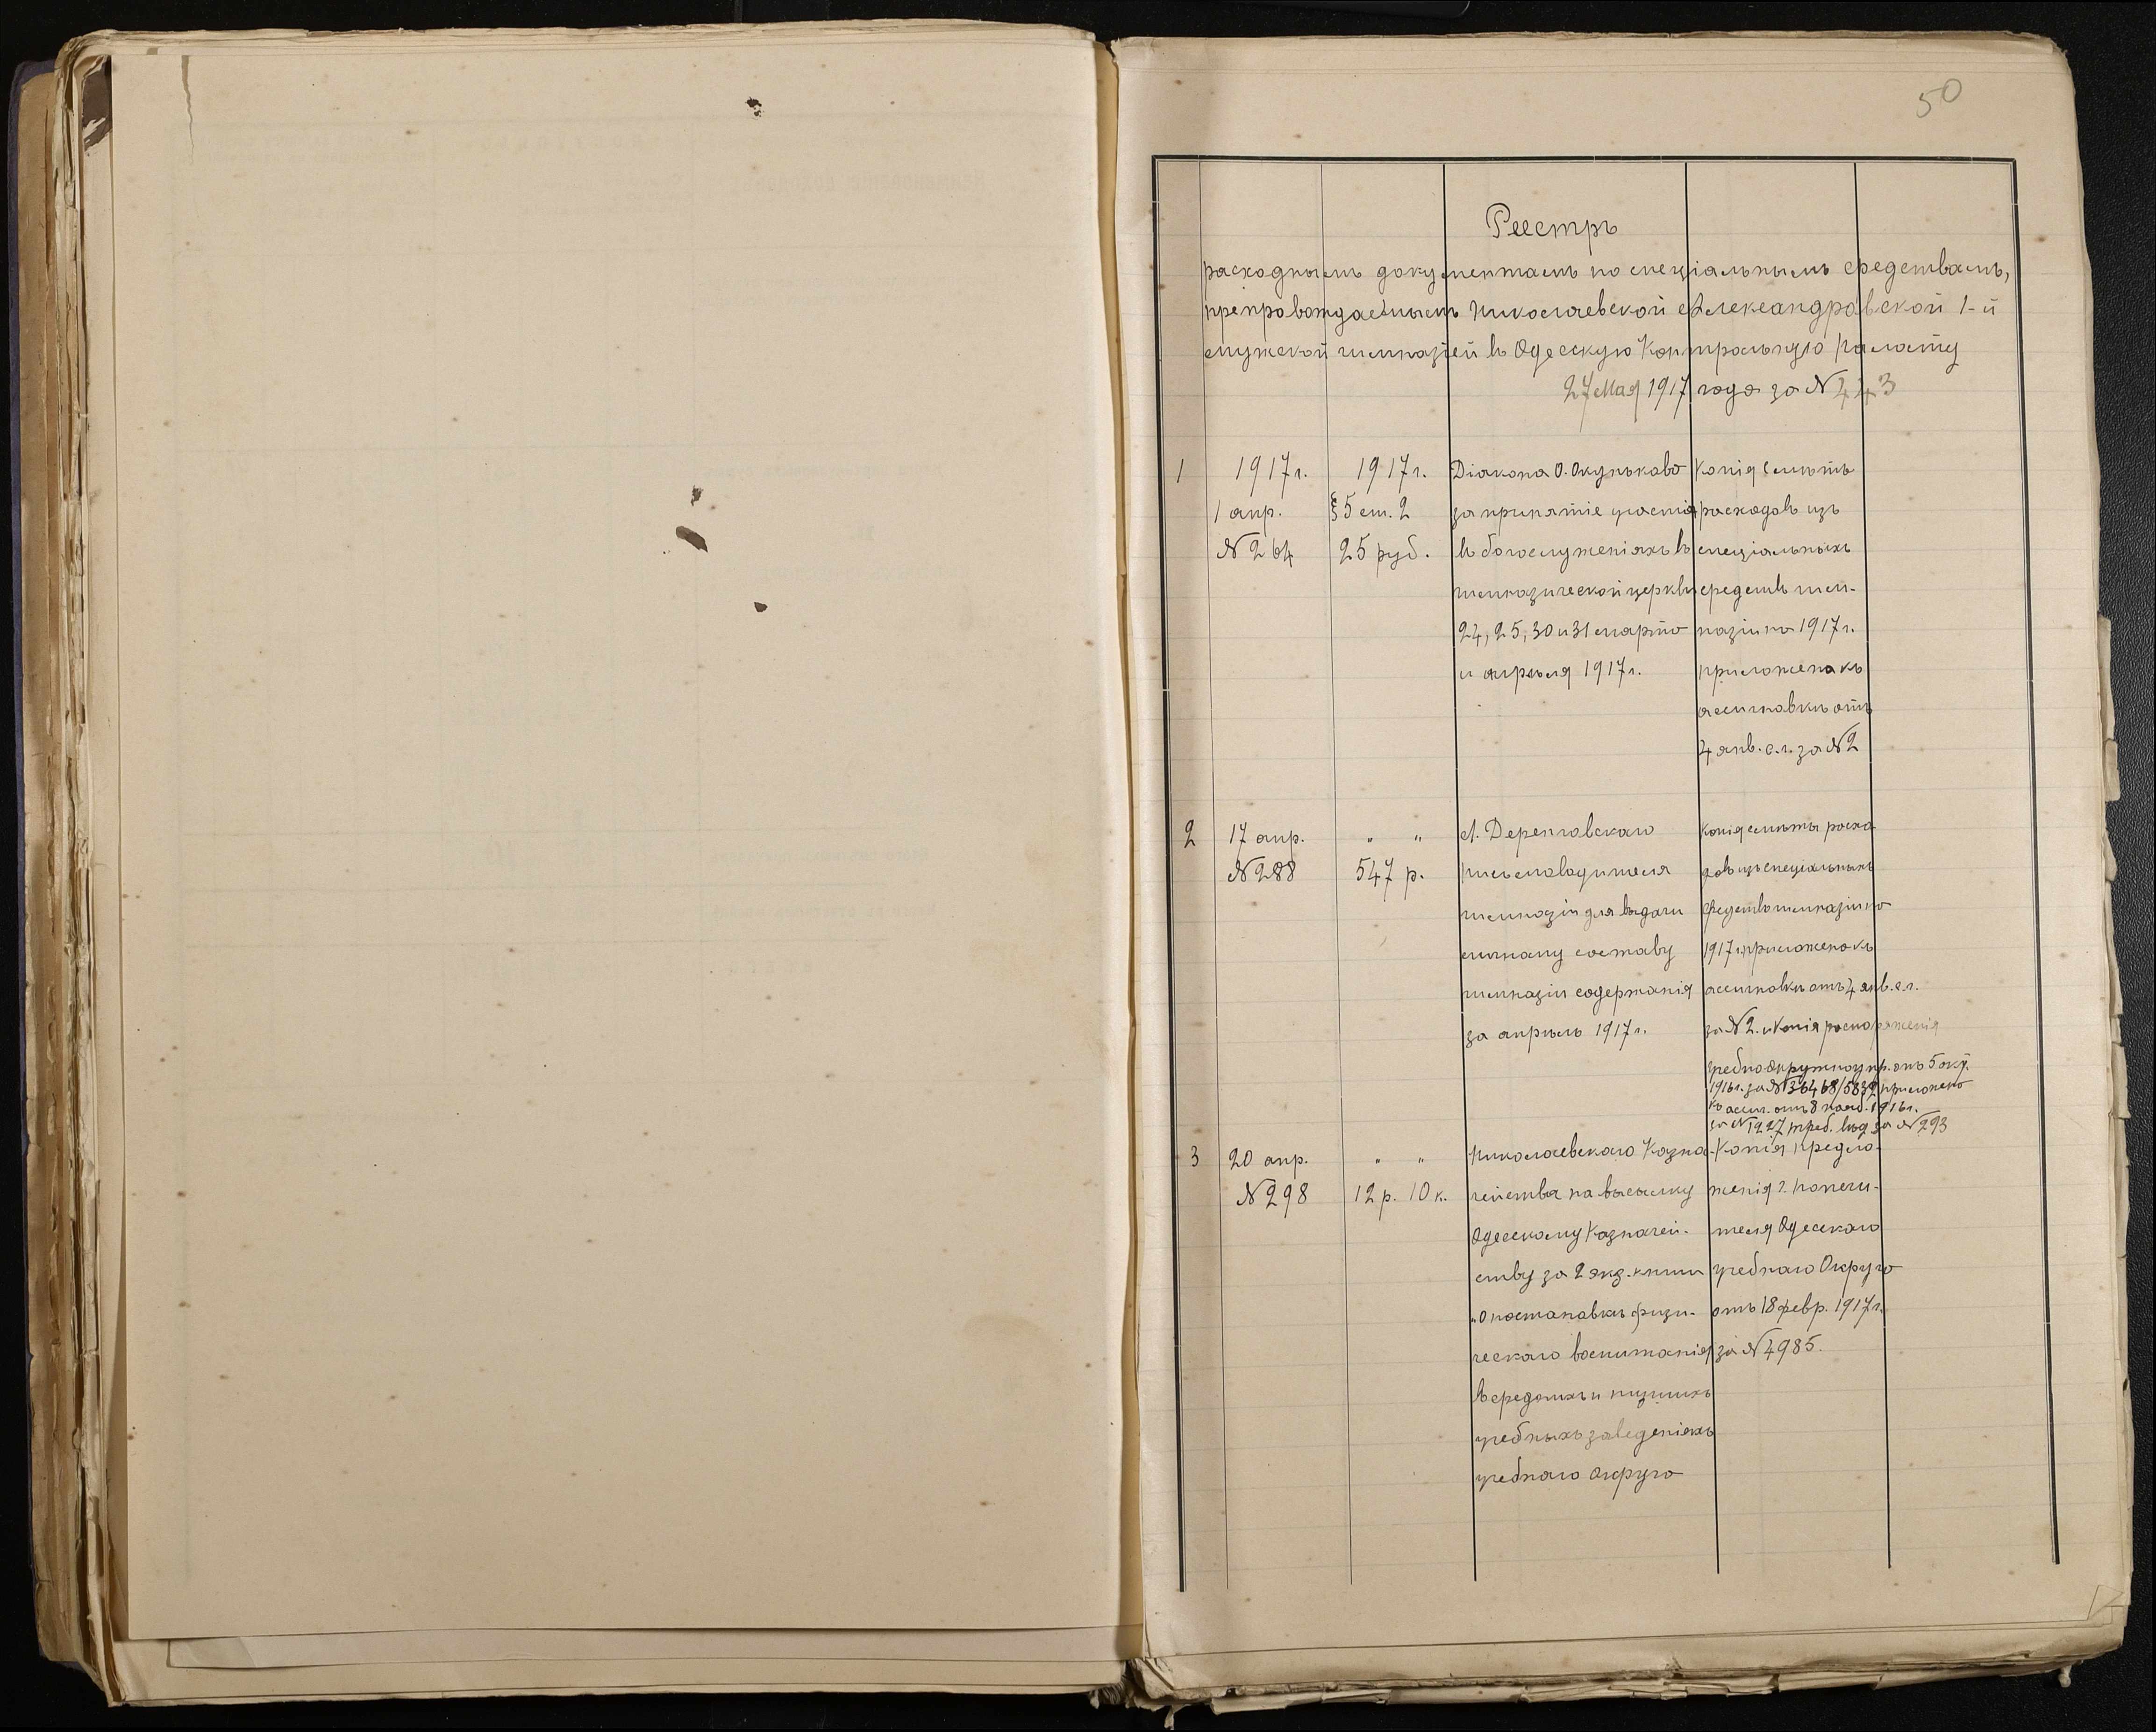 50
Реестръ
расходнымъ документамъ по спеціальнымъ средствамъ,
препровождаемымъ Николаевской Александровской 1-й
мужской гимназіей въ Одесскую Контрольную Палату
27 Мая 1917 года за № 443
1
1917 г.
1 апр.
№ 264
1917 г.
§ 5 ст. 2
25 руб.
Діакона О. Окунькова
за принятіе участія
въ богослуженіяхъ въ
гимназической церкви
24, 25, 30 и 31 марта
и апрѣля 1917 г.
Копія смѣтъ
расходовъ изъ
спеціальныхъ
средствъ гим-
назіи на 1917 г.
приложена къ
ассигновкѣ отъ
4 янв. с.г. за № 2
2
17 апр.
№ 288
" "
547 р.
письмоводителя
гимназіи для выдачи
личному составу
гимназіи содержанія
за апрѣль 1917 г.
Копія смѣты расхо
довъ изъ спеціальныхъ
средствъ гимназіи на
1917 г. приложена къ
ассигновкѣ отъ 4 янв. с.г.
за № 2. и Копія распоряженія
отъ 5 окт.
1916 г. за № приложена
къ ассиг. отъ 8 нояб. 1916 г.
за № 1227 треб. вѣд. за № 293
3
20 апр.
№ 298
" "
12 р. 10 к.
Николаевскаго Казна-
чейства на высылку
Одесскому Казначей-
ству за 2 экз. книги
"О постановкѣ физи-
ческаго воспитанія
въ среднихъ и низшихъ
учебныхъ заведеніяхъ
учебнаго округа
Копія предло-
женія г. Попечи-
теля Одесскаго
учебнаго Округа
отъ 18 февр. 1917 г.
за № 4985.